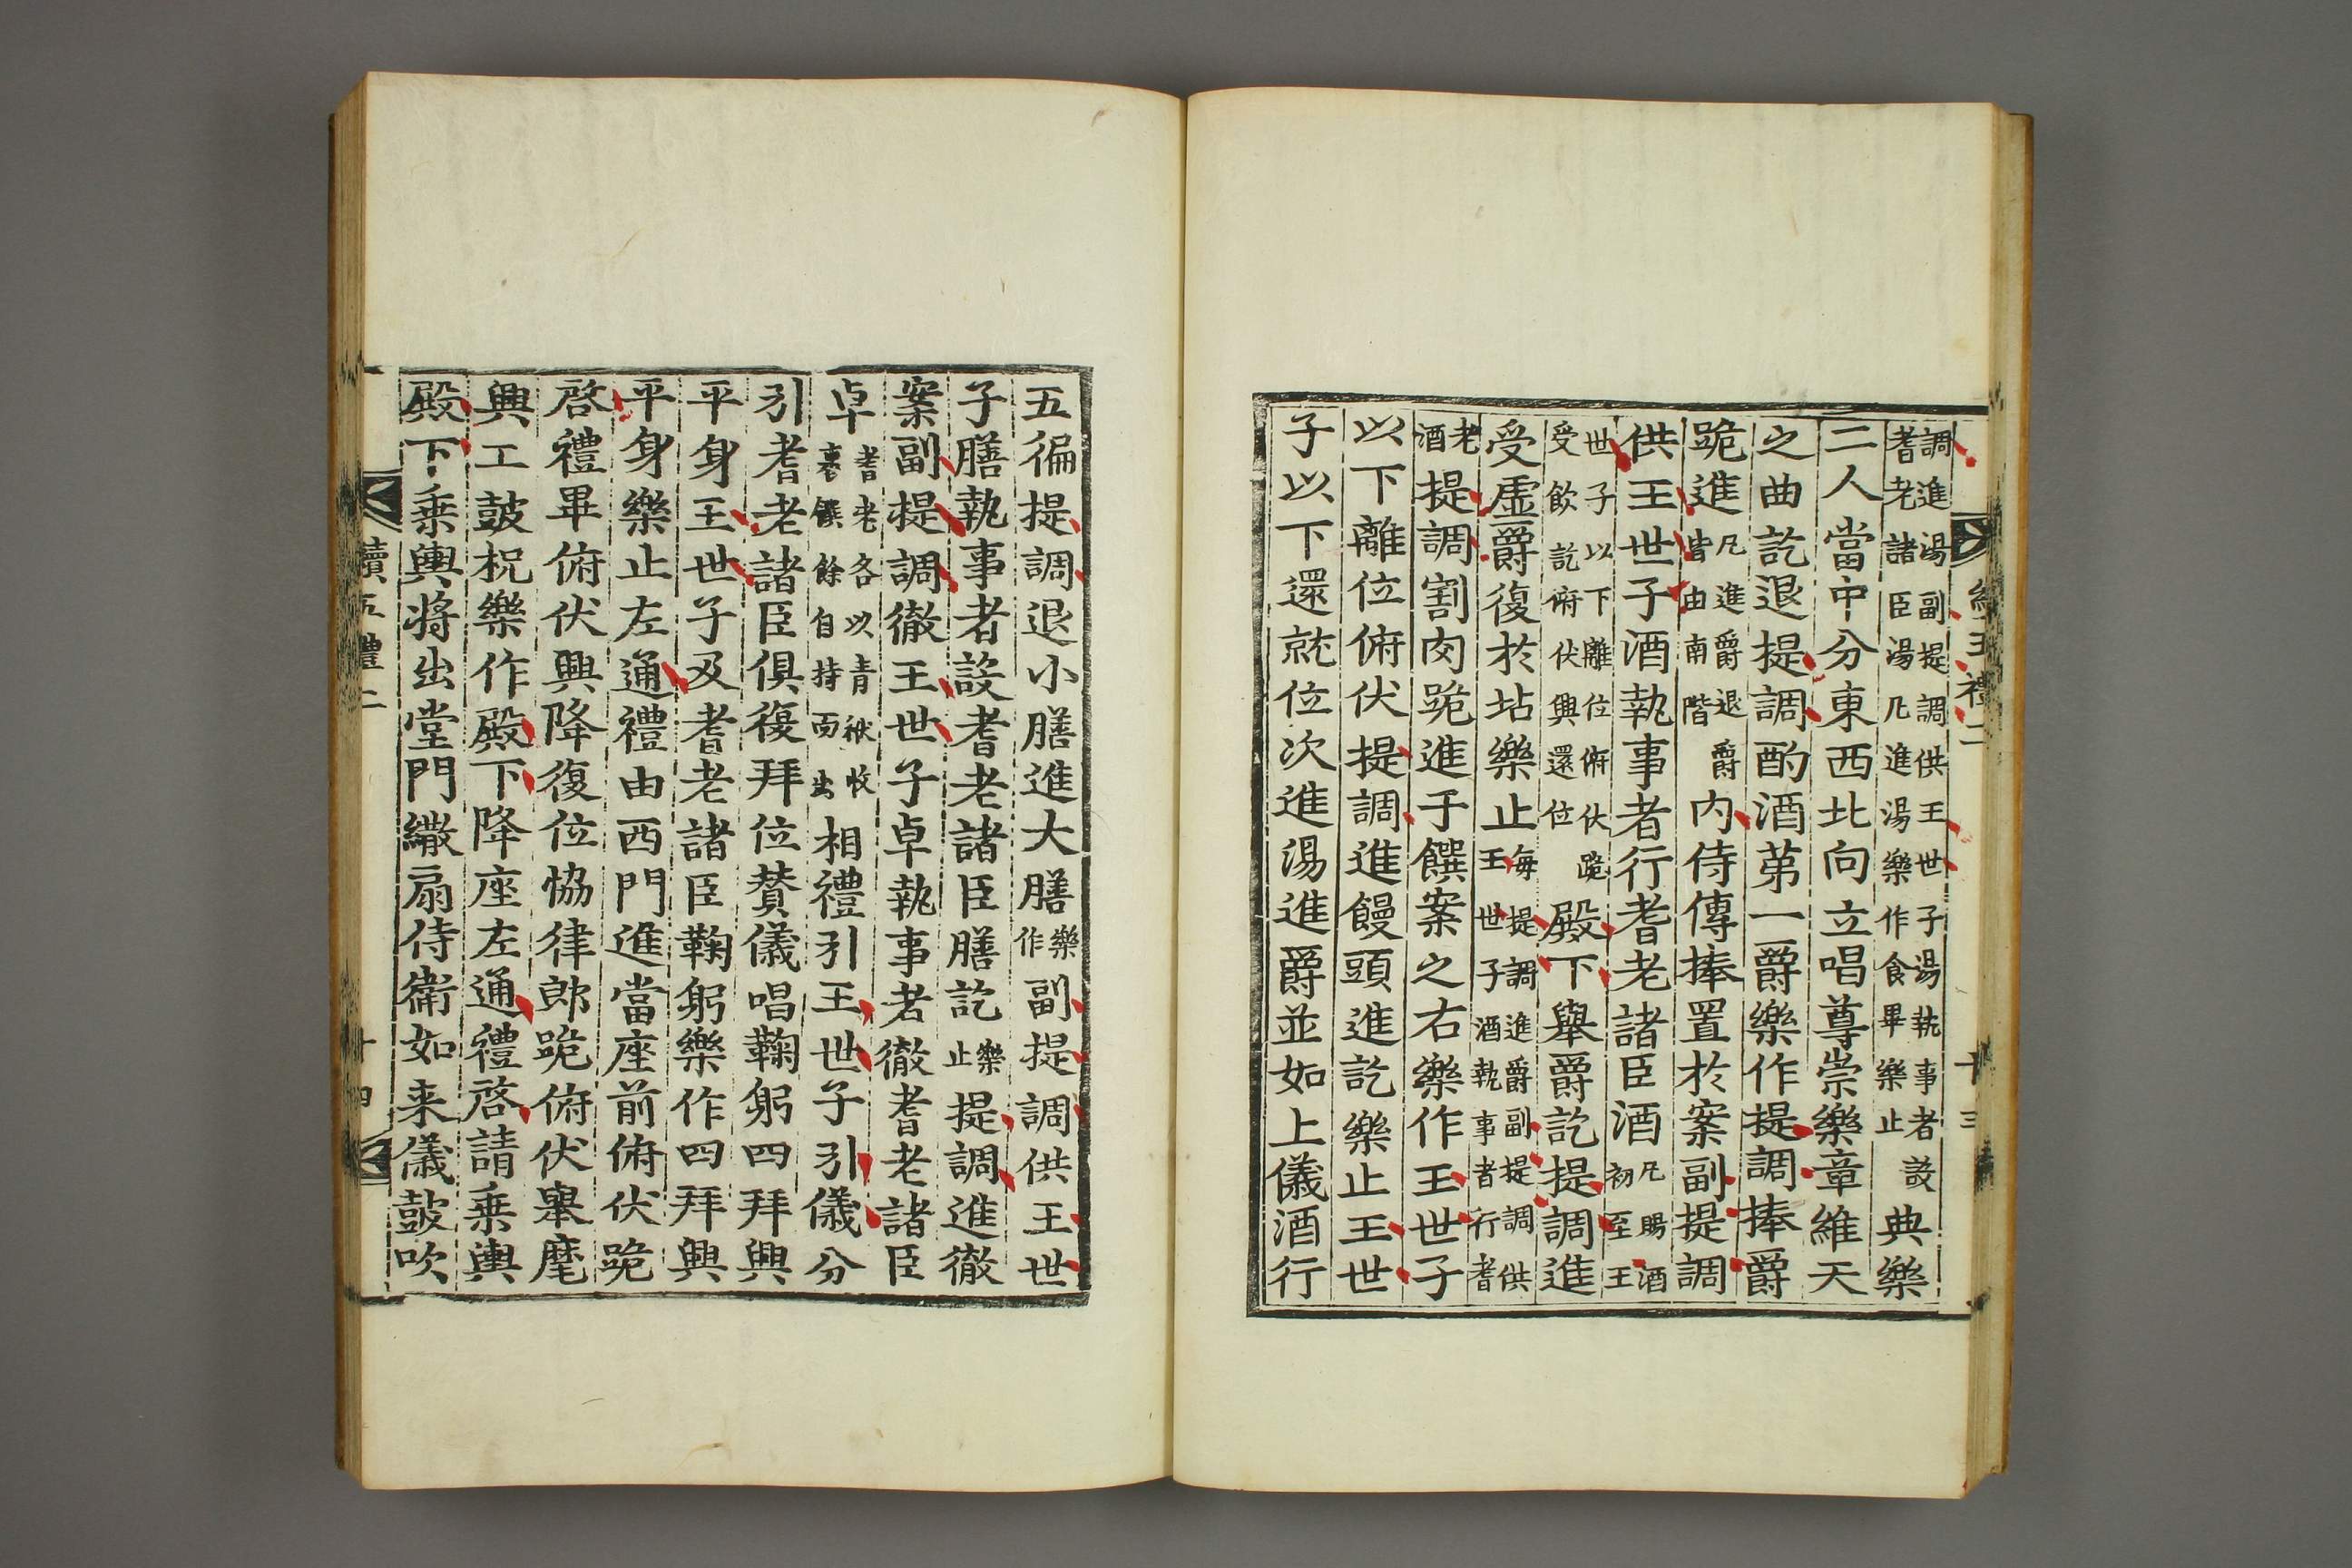 調進湯副提調供王世子湯執事者設耆老諸臣湯凡進湯樂作食畢樂止典樂
二人當中分東西北向立唱尊崇樂章維天
之曲訖退提調酌酒第一爵樂作提調捧爵
跪進凡進爵退爵皆由南階內侍傳捧置於案副提調
供王世子酒執事者行耆老諸臣酒凡賜酒初至王
世子以下離位俯伏跪受飲訖俯伏興還位殿下舉爵訖提調進
受虛爵復於坫樂止每提調進爵副提調供王世子酒執事者行耆
老酒提調割肉跪進于饌案之右樂作王世子
以下離位俯伏提調進饅頭進訖樂止王世
子以下還就位次進湯進爵並如上儀酒行
五徧提調退小膳進大膳樂作副提調供王世
子膳執事者設耆老諸臣膳訖樂止提調進徹
案副提調徹王世子卓執事者徹耆老諸臣
卓耆老各以青袱收裹饌餘自持而出相禮引王世子引儀分
引耆老諸臣俱復拜位贊儀唱鞠躬四拜興
平身王世子及耆老諸臣鞠躬樂作四拜興
平身樂止左通禮由西門進當座前俯伏跪
啓禮畢俯伏興降復位協律郎跪俯伏舉麾
興工鼓柷樂作殿下降座左通禮啓請乘輿
殿下乘輿將出堂門繖扇侍衛如來儀鼓吹
續五禮二
十四